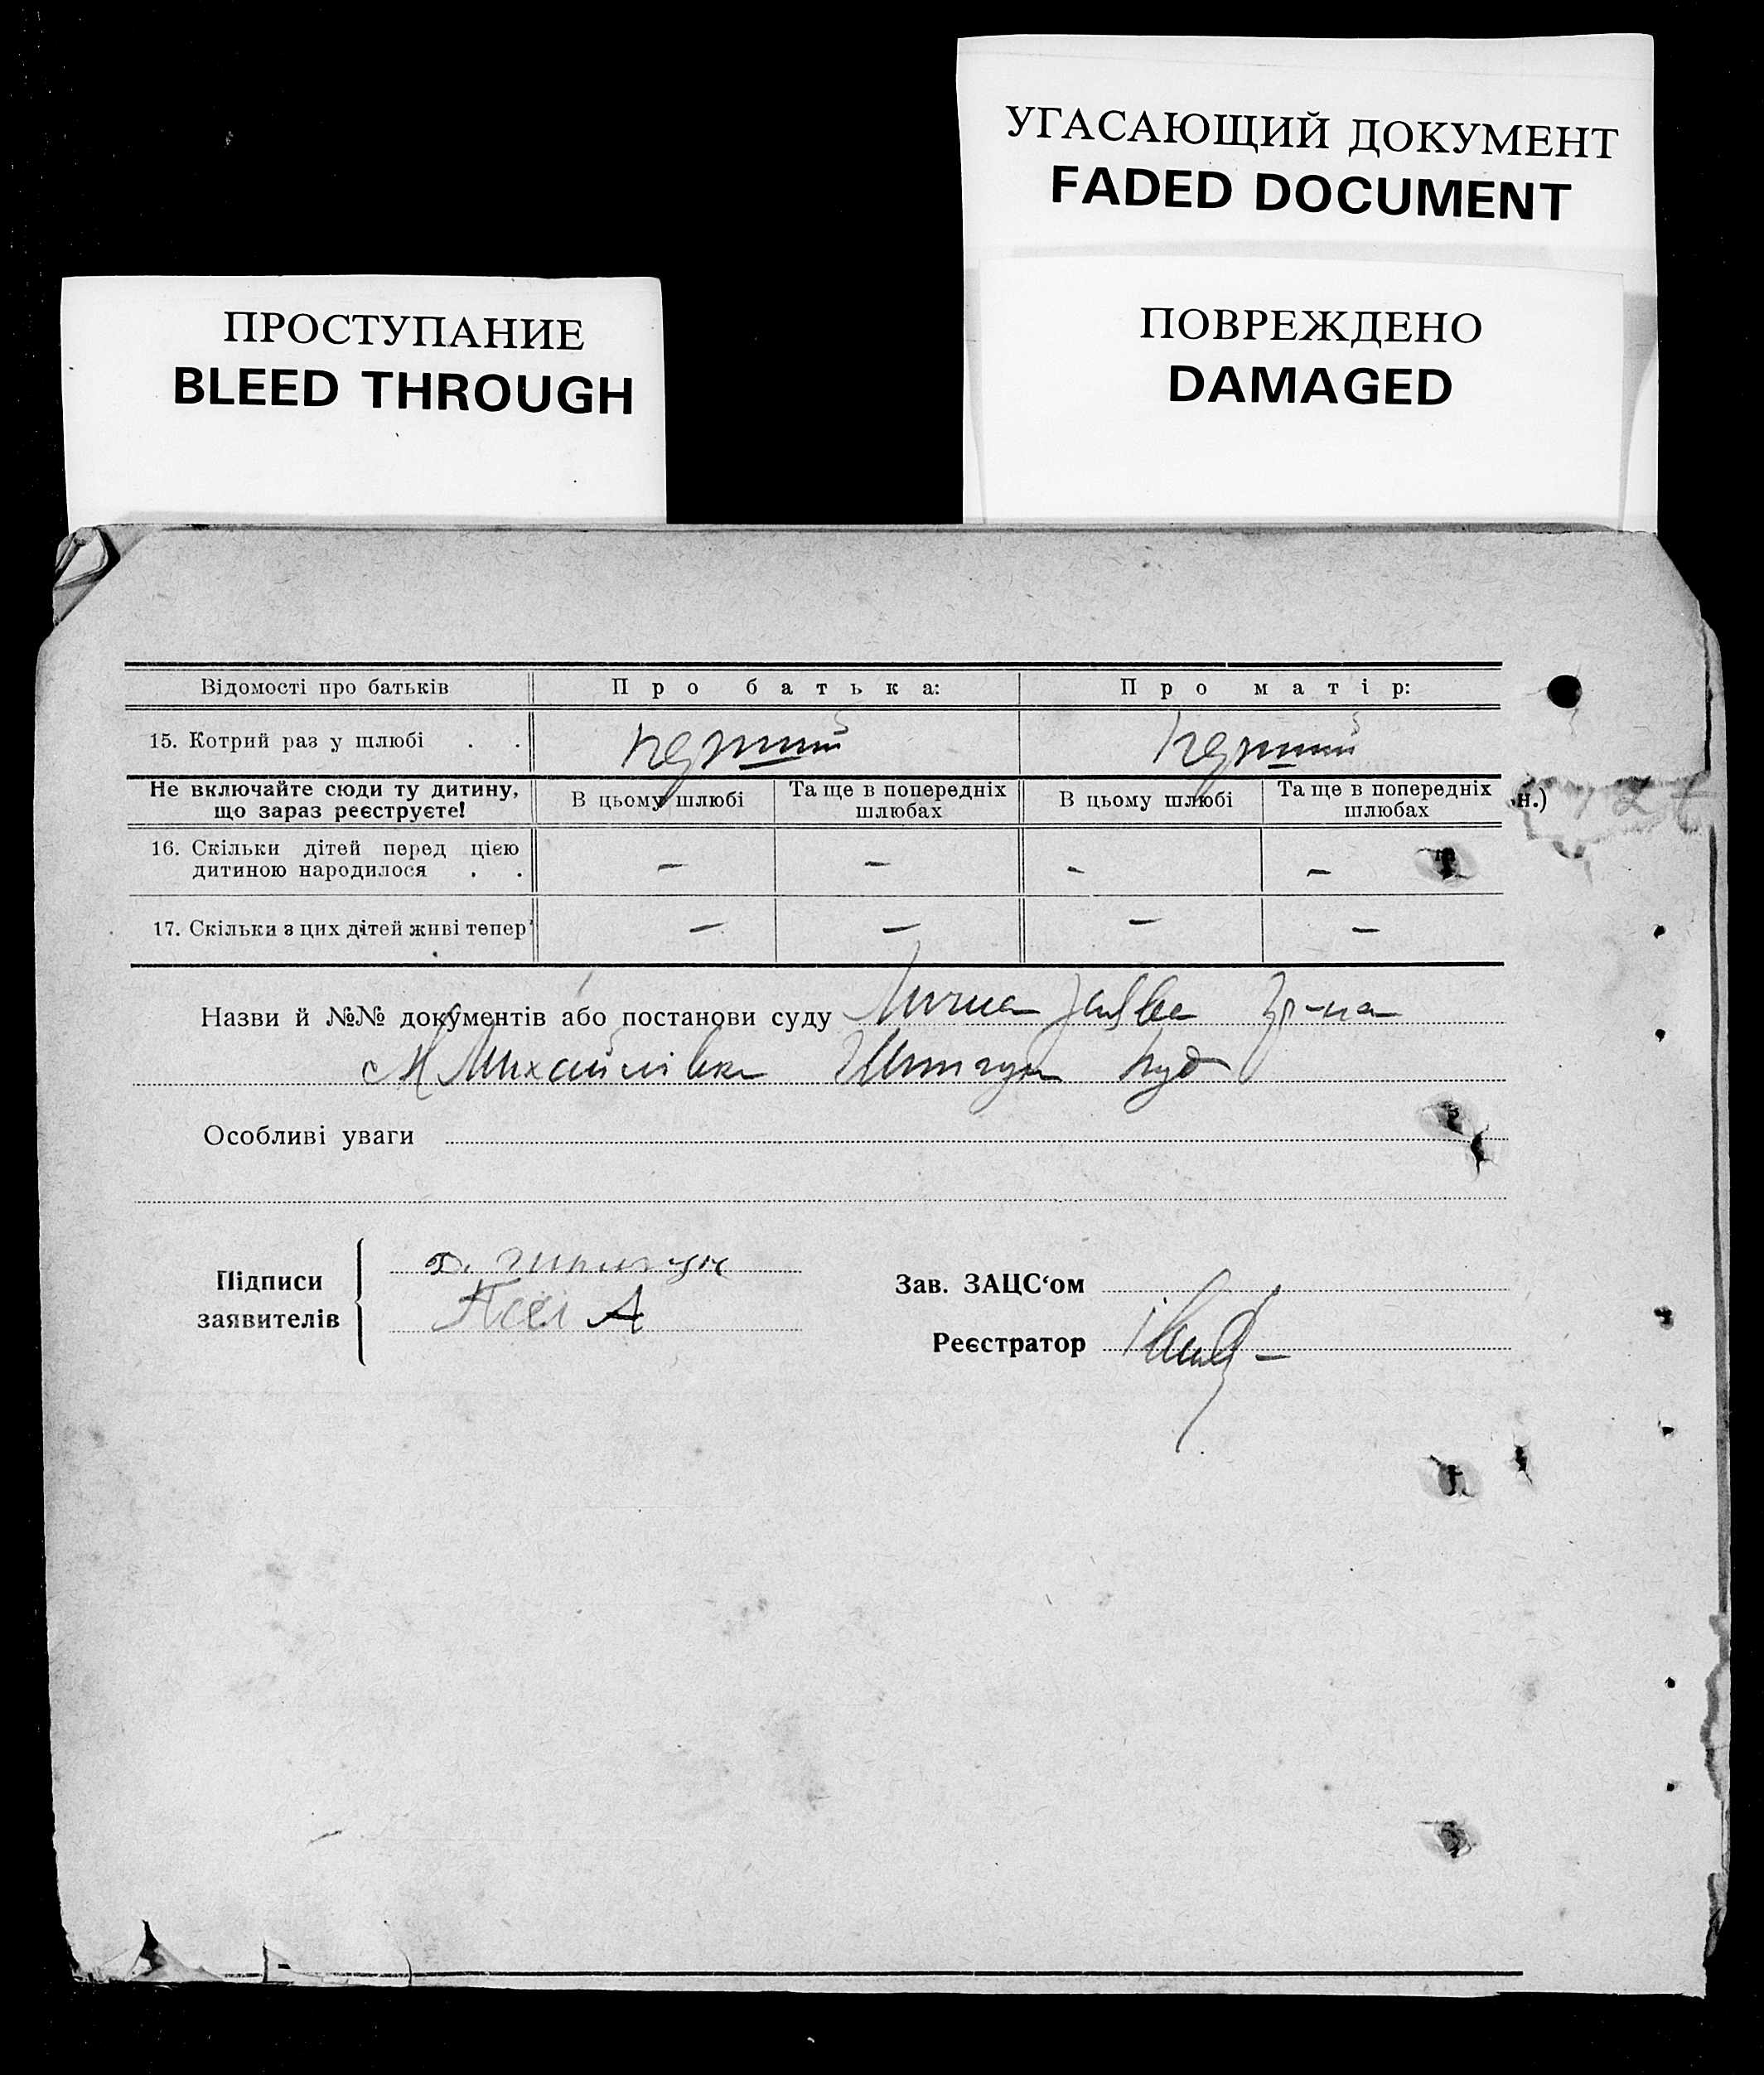 УГАСАЮЩИЙ ДОКУМЕНТ
FADED DOCUMENT
ПРОСТУПАНИЕ
BLEED THROUGH
ПОВРЕЖДЕНО
DAMAGED
Відомості про батьків Про батька: Про матір:
15. Котрий раз у шлюбі . . перший перший
Не включайте сюди ту дитину, що зараз реєструєте! В цьому шлюбі Та ще в попередніх шлюбах В цьому шлюбі Та ще в попередніх шлюбах н.)
16. Скільки дітей перед цією
дитиною народилося . . — — — —
17. Скільки з цих дітей живі тепер — — — —
Назви й №№ документів або постанови суду Лична заява гр-на
с М Михайлівки
Особливі уваги
Підписи
заявителів
А
Зав. ЗАЦС‘ом
Реєстратор